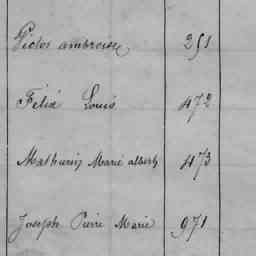 Victor ambroise 251
Félix Louis 472
Mathurin Marie albert 473
Joseph Pierre Marie 971